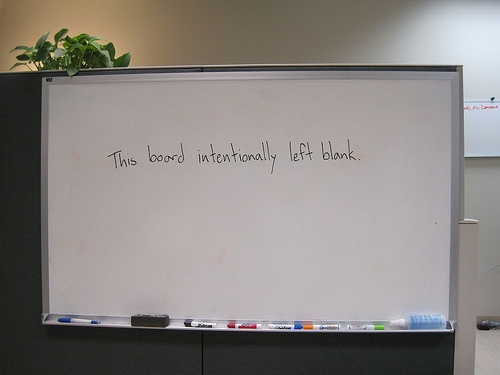 This board intentionally left blank.